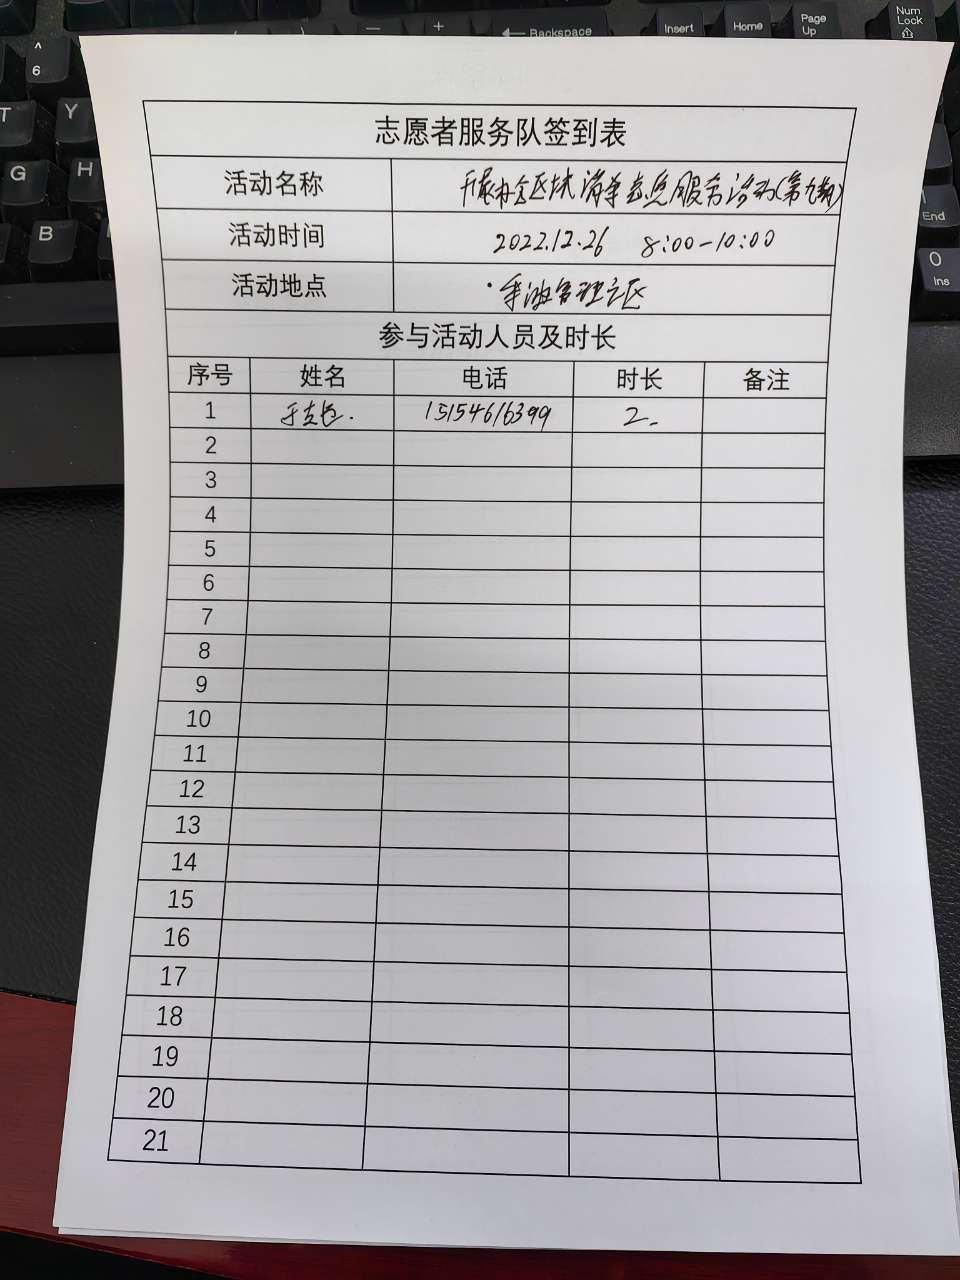 Backspace
Insert
Home
Page Up
Num Lock
^
6
T
Y
G
H
B
End
0
Ins
志愿者服务队签到表
活动名称 开展 区块清 志愿服务活动(第九期)
活动时间 2022.12.26 8:00-10:00
活动地点 管理 区
参与活动人员及时长
序号 姓名 电话 时长 备注
1 15154616399 2.
2
3
4
5
6
7
8
9
10
11
12
13
14
15
16
17
18
19
20
21